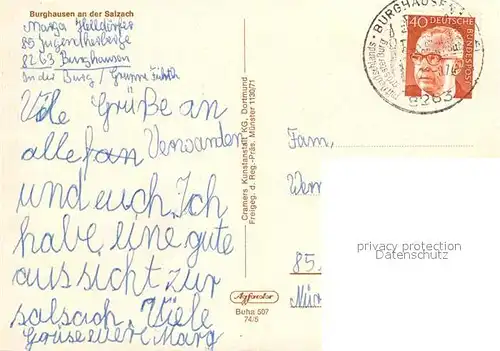 Burghausen an der Salzach
Marga Helldörfer
85 Jugendherberge
8263 Burghausen
In der Burg / Gruppe Fürth
Viele Grüße an
alle fan Verwanden
und euch. Ich
habe eine gute
aussicht zur
salsach. Viele
Grüse euer Marg
Cramers Kunstanstalt KG, Dortmund
Freigeg. d. Reg.-Präs. Münster 1130/71
Agfacolor
Buha 507
74/5
BURGHAUSEN
8263
40
DEUTSCHE BUNDESPOST
Fam,
Wern
85.
Nür
privacy protection
Datenschutz